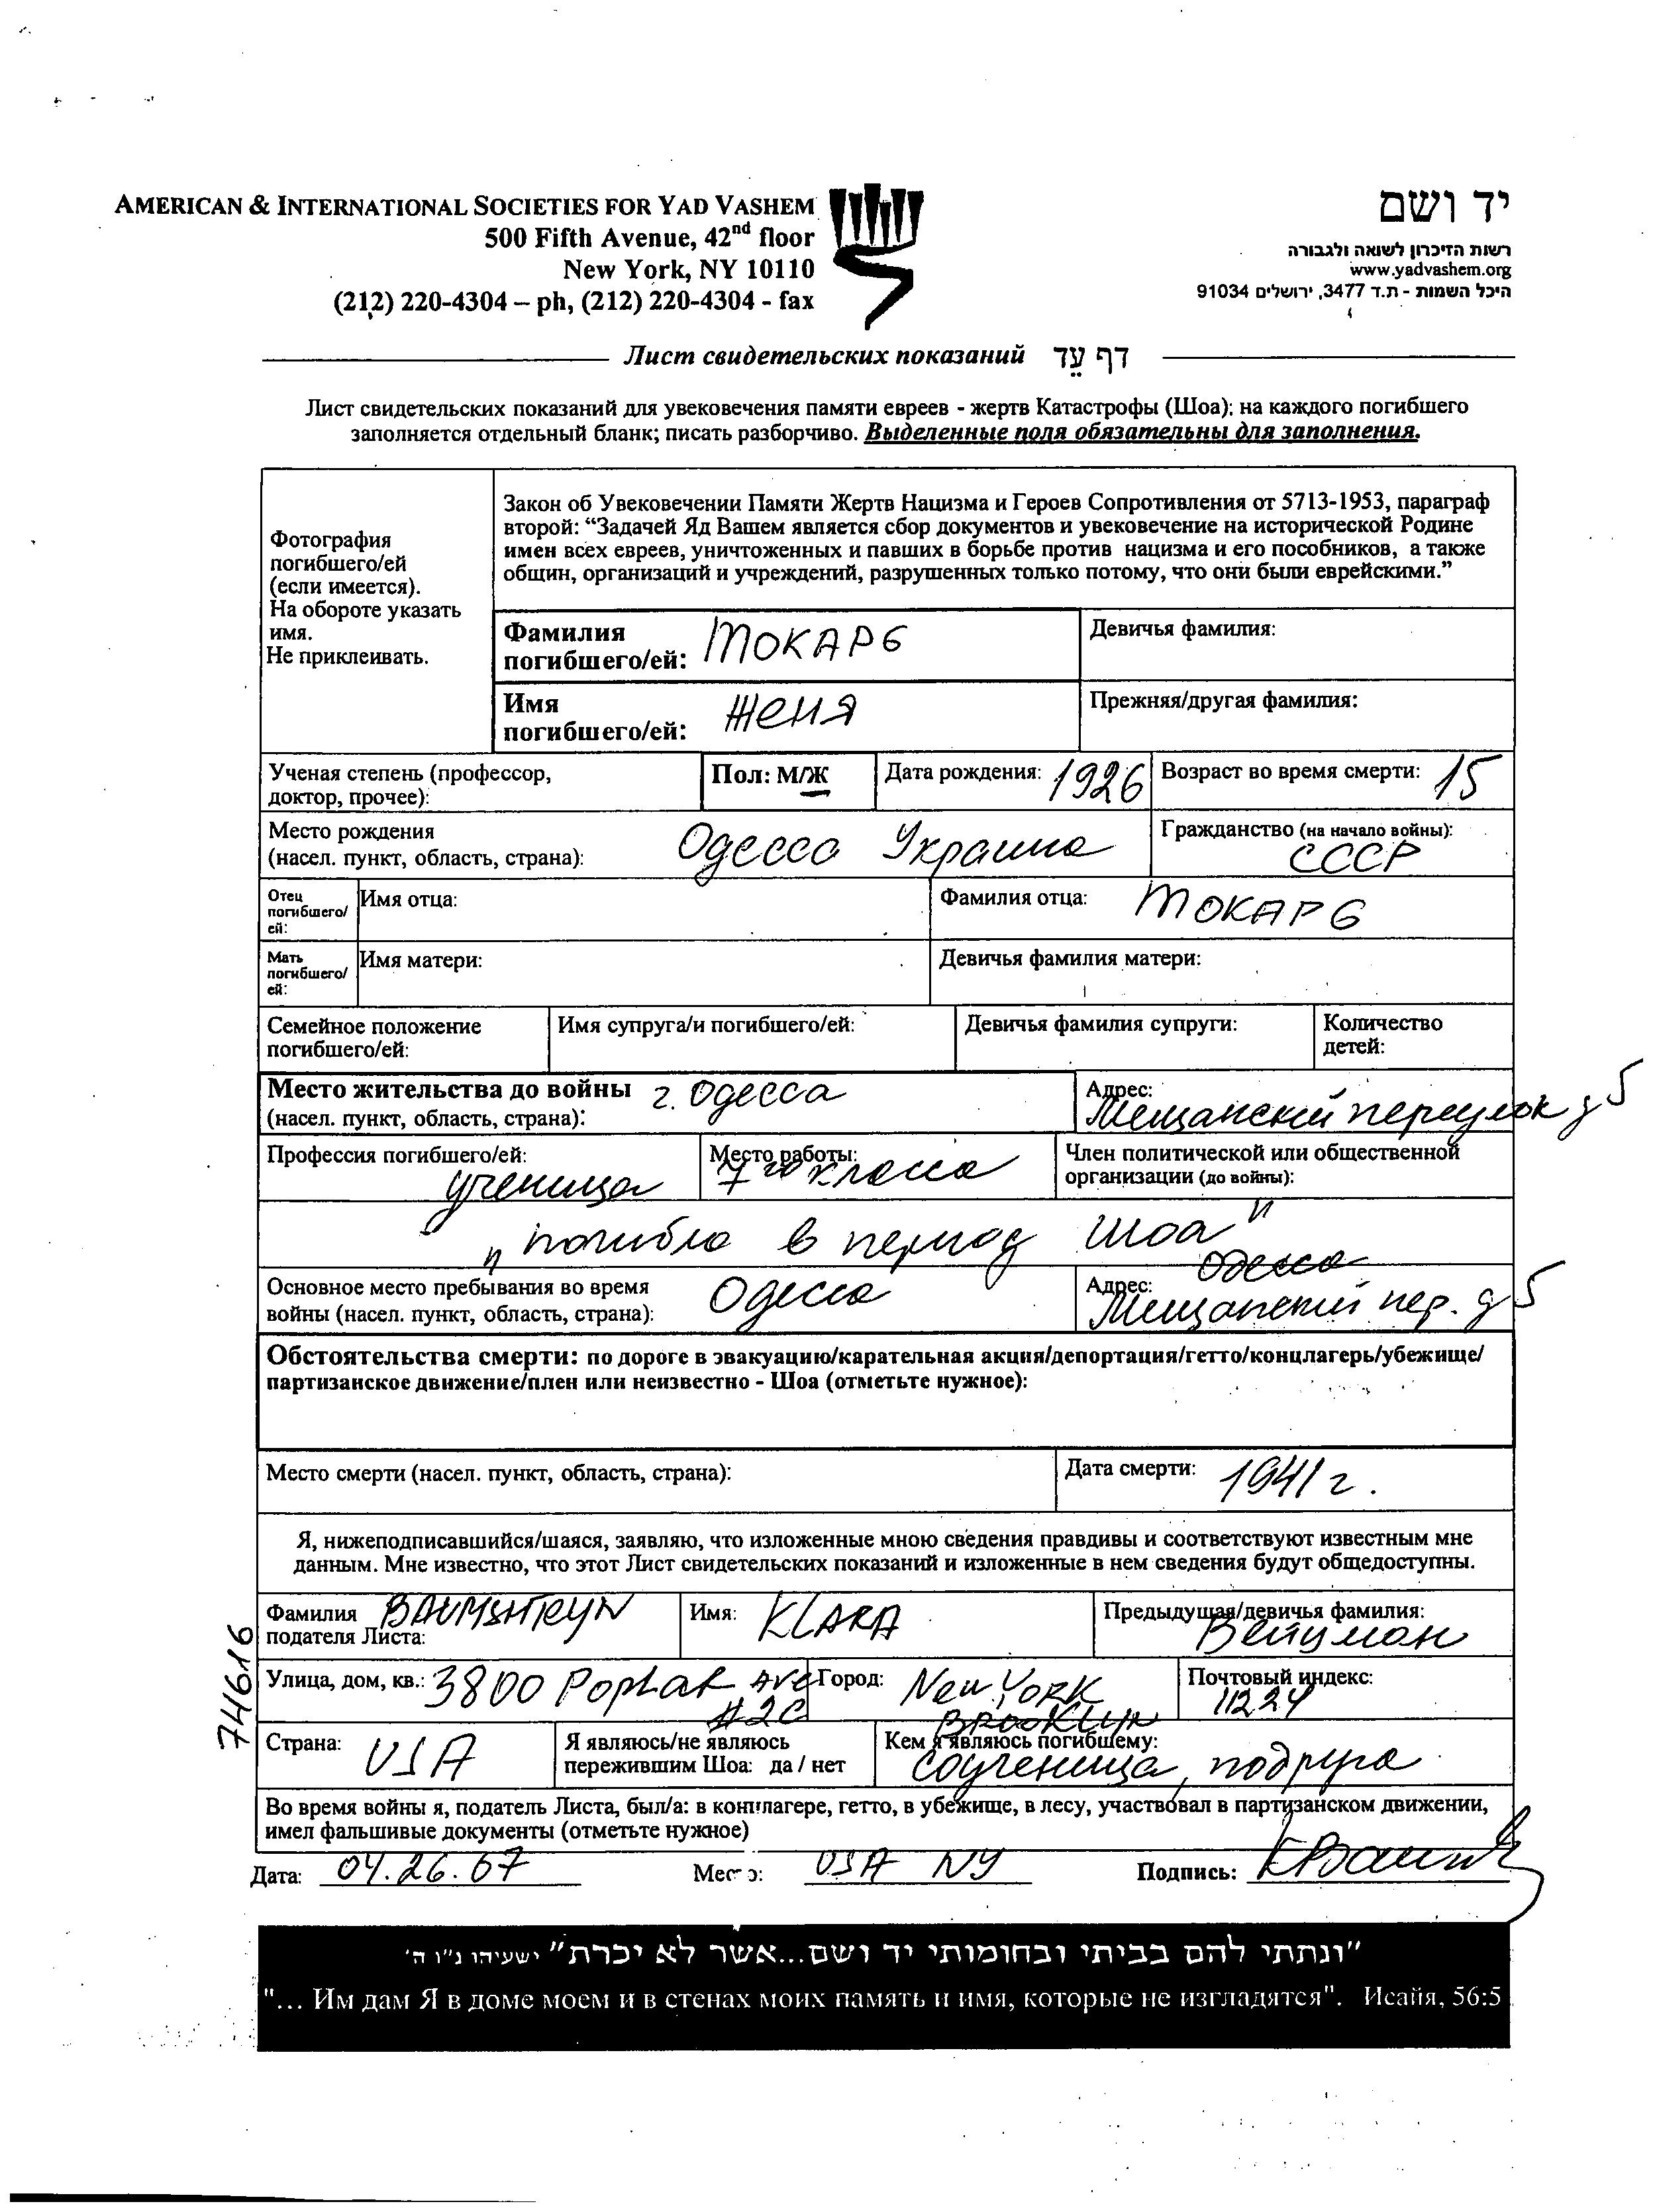 AMERICAN & INTERNATIONAL SOCIETIES FOR YAD VASHEM
500 Fifth Avenue, 42nd floor
New York, NY 10110
(212) 220-4304 – ph, (212) 220-4304 - fax
יד ושם
רשות הזיכרון לשואה ולגבורה
www.yadvashem.org
היכל השמות - ת.ד 3477, ירושלים 91034
Лист свидетельских показаний דף עֵד
Лист свидетельских показаний для увековечения памяти евреев - жертв Катастрофы (Шоа); на каждого погибшего
заполняется отдельный бланк; писать разборчиво. Выделенные поля обязательны для заполнения.
Фотография
погибшего/ей
(если имеется).
На обороте указать
имя.
Не приклеивать.
Закон об Увековечении Памяти Жертв Нацизма и Героев Сопротивления от 5713-1953, параграф
второй: “Задачей Яд Вашем является сбор документов и увековечение на исторической Родине
имен всех евреев, уничтоженных и павших в борьбе против нацизма и его пособников, а также
общин, организаций и учреждений, разрушенных только потому, что они были еврейскими.”
Фамилия
погибшего/ей: ТОКАРЬ
Девичья фамилия:
Имя
погибшего/ей: Женя
Прежняя/другая фамилия:
Ученая степень (профессор,
доктор, прочее):
Пол: М/Ж
Дата рождения: 1926
Возраст во время смерти: 15
Место рождения
(насел. пункт, область, страна): Одесса Украина
Гражданство (на начало войны):
СССР
Отец
погибшего/
ей:
Имя отца:
Фамилия отца: ТОКАРЬ
Мать
погибшего/
ей:
Имя матери:
Девичья фамилия матери:
Семейное положение
погибшего/ей:
Имя супруга/и погибшего/ей:
Девичья фамилия супруги:
Количество
детей:
Место жительства до войны г. Одесса
(насел. пункт, область, страна):
Адрес:
Мещанский переулок д 5
Профессия погибшего/ей:
ученица
Место работы:
7го класса
Член политической или общественной
организации (до войны):
„погибла в период Шоа"
Основное место пребывания во время
войны (насел. пункт, область, страна): Одесса
Адрес: Одесса
Мещанский пер. д 5
Обстоятельства смерти: по дороге в эвакуацию/карательная акция/депортация/гетто/концлагерь/убежище/
партизанское движение/плен или неизвестно - Шоа (отметьте нужное):
Место смерти (насел. пункт, область, страна):
Дата смерти: 1941 г.
Я, нижеподписавшийся/шаяся, заявляю, что изложенные мною сведения правдивы и соответствуют известным мне
данным. Мне известно, что этот Лист свидетельских показаний и изложенные в нем сведения будут общедоступны.
Фамилия
подателя Листа: BAUMSHTEYN
Имя: KLARA
Предыдущая/девичья фамилия:
Вейцман
74616
Улица, дом, кв.: 3800 Poplar Ave
#2C
Город: New York
Brooklyn
Почтовый индекс:
11224
Страна: USA
Я являюсь/не являюсь
пережившим Шоа: да / нет
Кем я являюсь погибшему:
соученица, подруга
Во время войны я, податель Листа, был/а: в концлагере, гетто, в убежище, в лесу, участвовал в партизанском движении,
имел фальшивые документы (отметьте нужное)
Дата: 04.26.07
Место: USA NY
Подпись:
"ונתתי להם בביתי ובחומותי יד ושם...אשר לא יכרת" ישעיהו נ"ו ה'
"... Им дам Я в доме моем и в стенах моих память и имя, которые не изгладятся". Исайя, 56:5